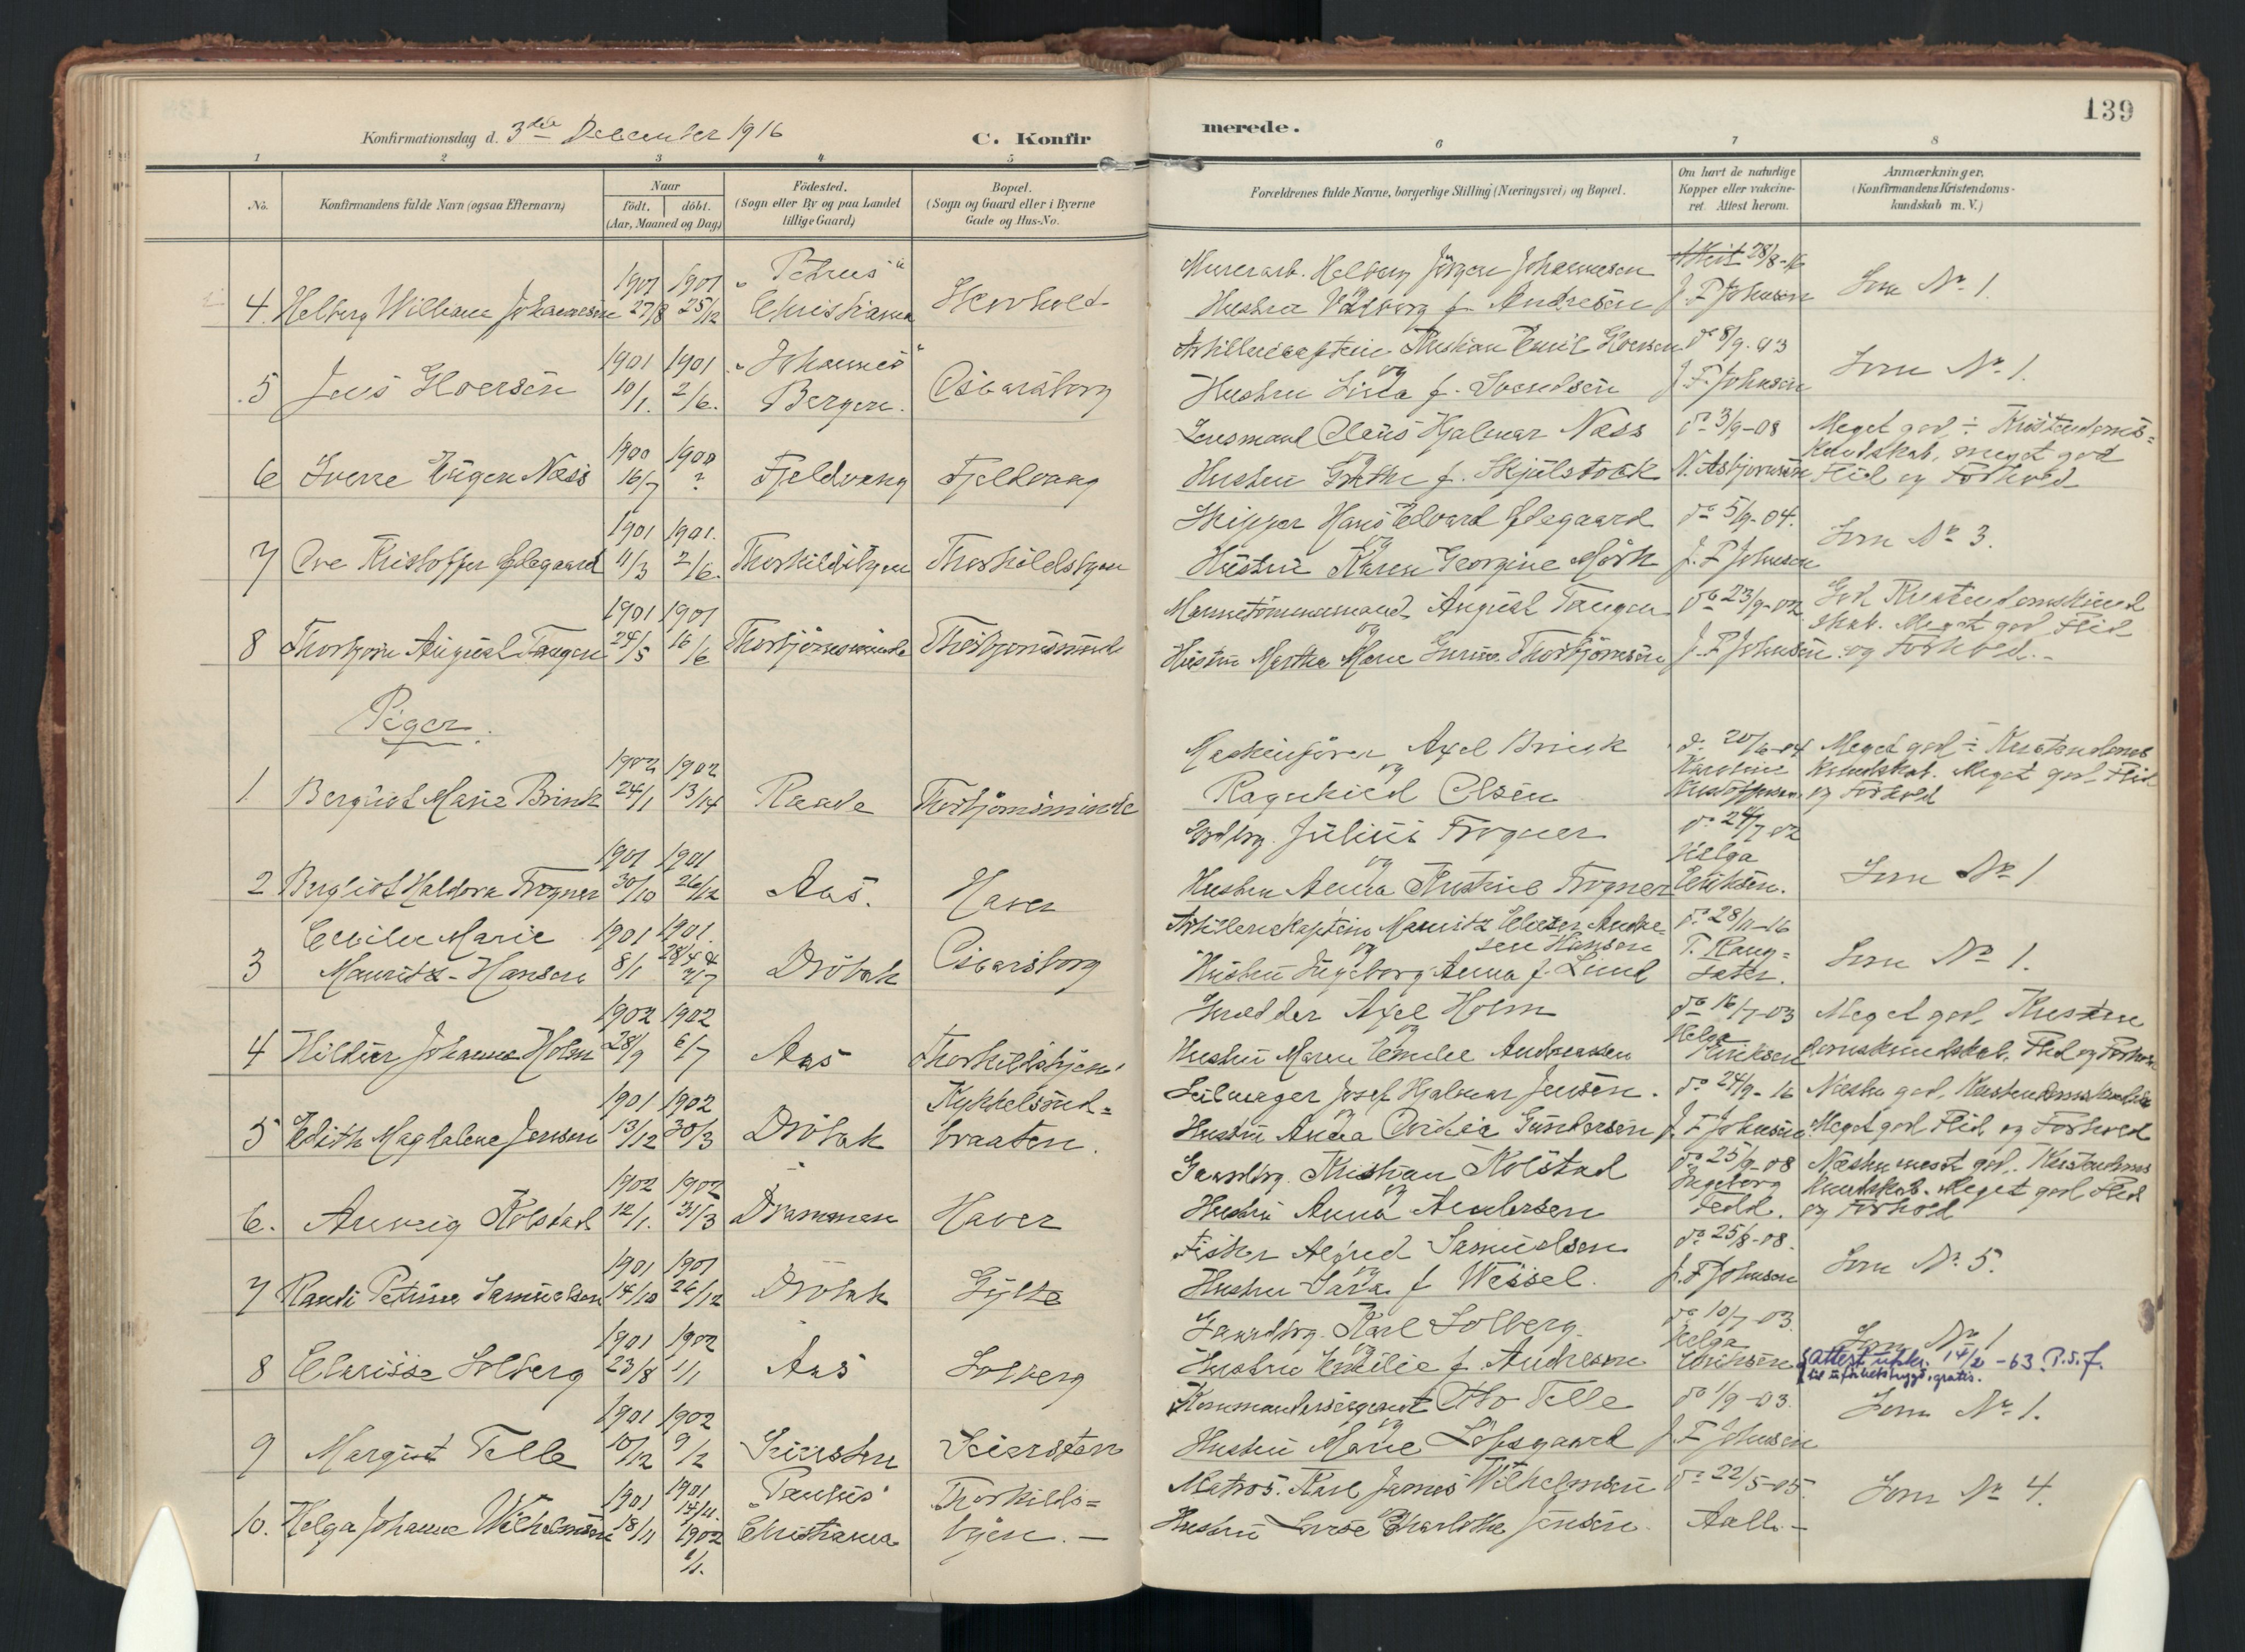 139
Konfirmationsdag d. 3die December 1916
C. Konfirmerede.
1 2 3 4 5 6 7 8
No.
Konfirmandens fulde Navn (ogsaa Efternavn)
Naar
født. døbt.
(Aar, Maaned og Dag)
Fødested.
(Sogn eller By og paa Landet
tillige Gaard)
Bopæl.
(Sogn og Gaard eller i Byerne
Gade og Hus-No.
Forældrenes fulde Navne, borgerlige Stilling (Næringsvei) og Bopæl.
Om havt de naturlige
Kopper eller vakcine-
ret. Attest herom.
Anmærkninger.
(Konfirmandens Kristendoms-
kundskab m. V.)
4. Helberg William Johannesen 1901 27/8 1901 25/12 "Petrus" Christiania
Murerarb. Helberg Jørgen Johannesen
og
Hustru Valborg f. Andresen
Attest 28/8-16
J. F. Johnsen
Som No 1.
5 Jens Hoersen 1901 10/1. 1901 2/6. "Johannes" Bergen. Oscarsborg
Artillericaptein Kristian Emil Hoersen
og
Hustru Lida f. Svendsen
do 8/9-03
J. F. Johnsen
Som No 1.
6 Sverre Eugen Næss 1900 16/7 1900 ? Fjeldvang Fjeldvang
Lensmand Claus Hjalmar Næss
Hustru Grethe f. Skjulstock
do 3/9-08
N. Asbjørnsen
Meget god ÷ Kristendoms=
kundskab, meget god
Flid og Forhold
7 Ove Kristoffer Ødegaard 1901 11/3 1901. 2/6. Thorkildsbyen Thorkildsbyen
Skipper Hans Edvard Ødegaard
og
Hustru Karen Georgine Mørk
do 5/9-04.
J. F. Johnsen
Som No 3.
8 Thorbjørn August Tangen 1901 24/5 1901 16/6 Thorbjørnsminde Thorbjørnsminde
Marinetømmermand August Tangen
og
Hustru Marthea Marie Thorbjørnsen
do 23/9-02
J. F. Johnsen
God Kristendomskund
skab. Meget god Flid
og Forhold.-
Piger.
1. Bergliot Marie Brink 1902 24/1 1902 13/14 Raade Thorbjørnsminde
Maskinfører Axel Brink
og
Ragnhild Olsen
do 20/6-04
Karoline
Kristoffersen.
Meget god ÷ Kristendoms
kundskab. Meget god Flid
og Forhold
2 Bergliot Haldora Frogner 1901 30/10 1901 26/12 Aas. Haver
Julius Frogner
og
Hustru Anna Kristine Frogner
do 24/7 02
Helga
Eriksen.
Som No 1
3 Cecilie Marie
Mauritz-Hansen 1901 8/1 1901. 28/4 & 7/7 Drøbak Oscarsborg
Artillerikaptein Mauritz Andre
sen Hansen
og
Hustru Ingeborg Anna f. Lund
do 28/11-16
T. Rang=
sæter.
Som No 1.
4 Hildur Johanne Holm 1902 28/9 1902 6/7 Aas Thorkildsbyen
Smed der Axel Holm
og
Hustru Maren Emilie Andreassen
do 16/7-03
Helga
Eriksen
Meget god, Kristen
domskundskab, Flid og Forhold
5 Edith Magdalene Jensen 1901 13/12 1902 30/3 Drøbak Kykkelsrud=
braaten.
Seilmager Josef Hjalmar Jensen.
og
Hustru Anna Gundersen
do 24/9-16
J. F. Johnsen
Næsten god, Kristendomskundskab
Meget god Flid og Forhold
6. Kolstad 1902 12/1. 1902 31/3 Drammen Haver
Gaardbrg. Kristian Kolstad
og
Hustru Anna Andersen
do 25/9-08
Ingeborg
Fedd.
Næsten meget god. Kristendoms
kundskab. Meget god Flid
og Forhold
7 Randi Petrine Samuelsen 1901 14/10 1901 26/12 Drøbak Gylte
Fisker Alfred Samuelsen
og
Hustru Sara f Wessel.
do 25/8-08.
J. F. Johnsen
Som No 5.
8 Clarisse Solberg 1901 23/8 1902 1/1 Aas Solberg
Gaardbrg. Karl Solberg.
og
Hustru Emilie f. Andresen
do 10/7-03.
Helga
Eriksen
Som No 1
attest utskr. 14/2 -63. P.S.F.
til uførhetstrygd, gratis.
9 Margit Telle 1901 10/12 1902 9/2 Seiersten Seiersten
Kommandersergeant Otto Telle
og
Hustru Marie Løfsgaard
do 1/9-03.
J. F Johnsen
Som No 1.
10. Helga Johanne Wilhelmsen 1901 18/11 1901 14/11. 1902 1/1. "Paulus" Christiania Thorkilds=
byen.-
Matros. Karl James Wilhelmsen
Hustru Lovise Charlotte Jensen.
do 22/5-05.
Aall.-
Som No 4.